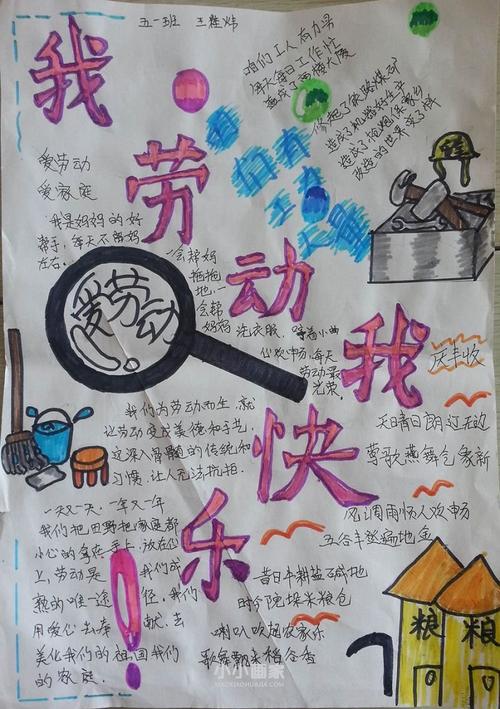 五一班 王
我劳动我快乐
咱们工人有力量
每天每日工作忙
盖成了高楼大厦
修起了铁路煤矿
造成了机器转生产
造成了枪炮保家乡
改造的世界变了样
咱们工人有力量
爱劳动
爱家庭
我是妈妈的好
帮手，每天不离妈
左右。
会帮妈
拖拖
地，一
会帮
妈妈洗衣服，哼着小曲
心欢申防，每天
劳动最
光荣。
爱劳动
我们为劳动而生，就
让劳动变成美德和予光
这深入骨髓的传统和
习惯，让人无法抗拒。
一天又一天，一年又一年
我们把田野把家庭都
小心的拿在手上，放在心
上，劳动是我们成
就的唯一途径，我们
用爱心去奉献，去
美化我们的祖国我们
的家庭。
庆丰收
天日青日朗辽无边
莺歌燕舞气象新
风调雨顺人欢畅
五谷丰登遍地金
昔日牛耕盐碱地
时今院垛米粮包
喇叭欢超农家乐
歌舞飘来稻谷香
粮
粮
小小画家
XIAOXIAOHUAJIA.COM